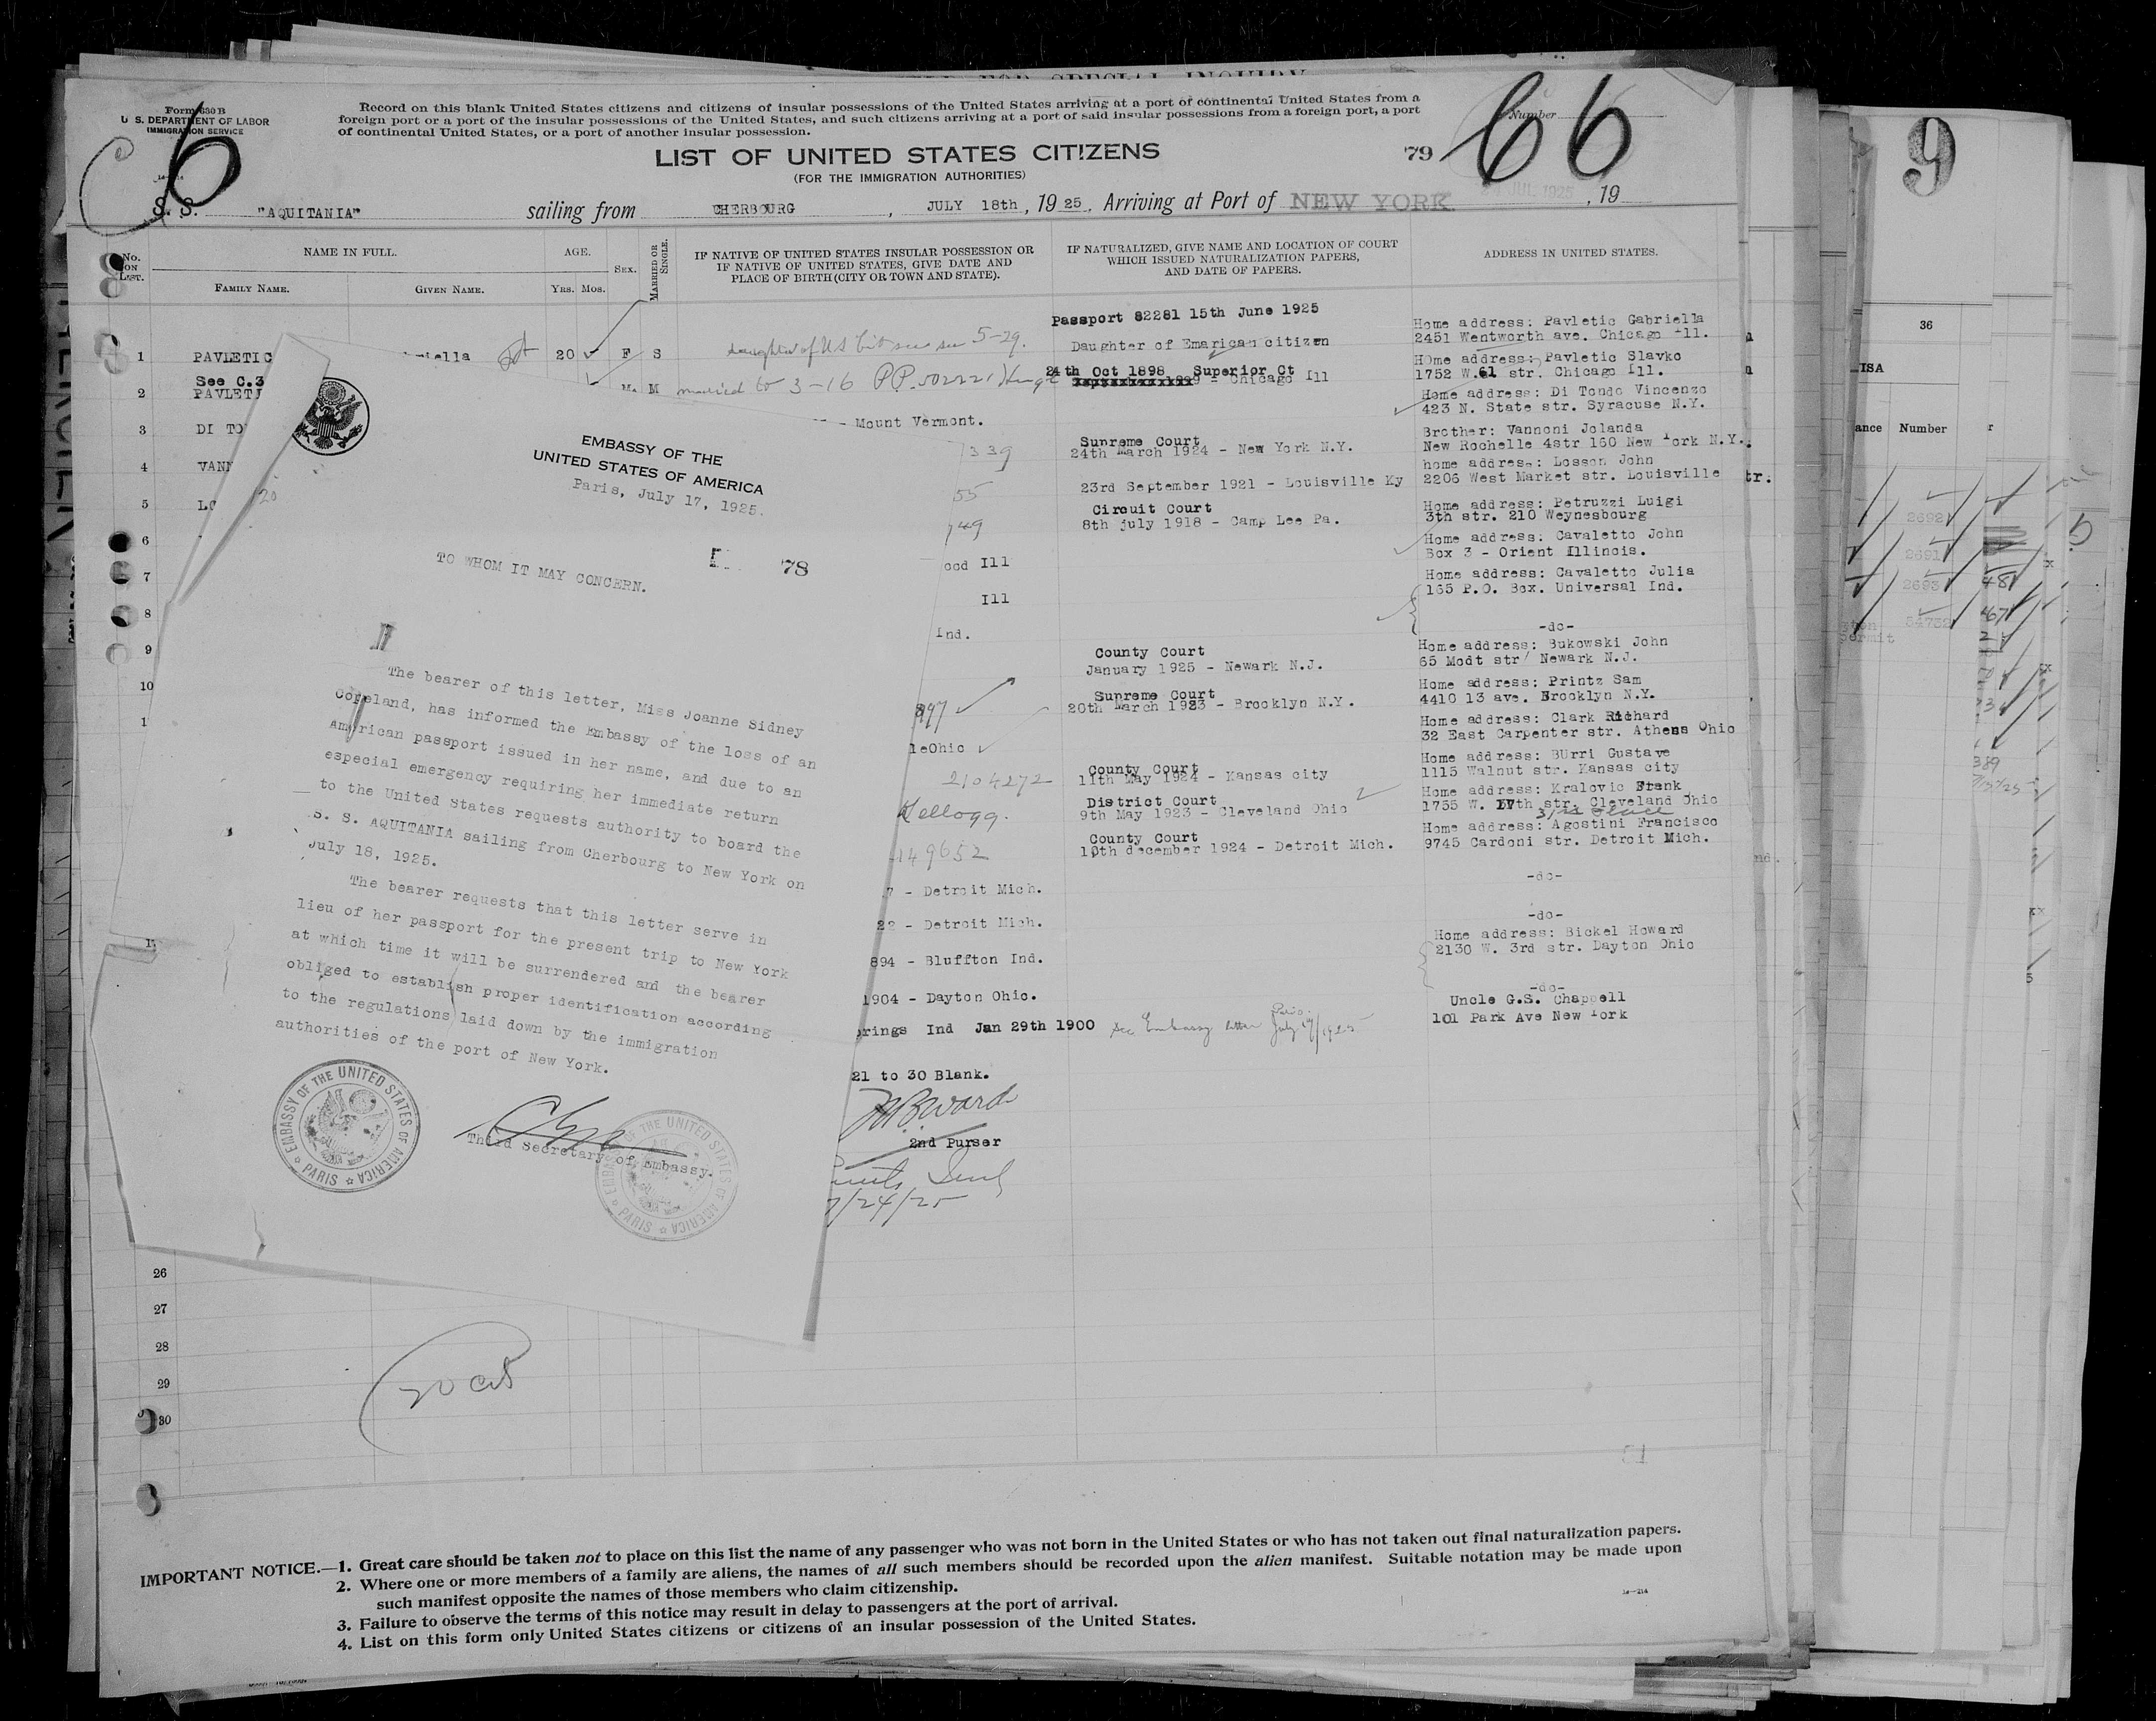 FOR SPECIAL INQUIRY
Form 630 B
U. S. DEPARTMENT OF LABOR
IMMIGRATION SERVICE
Record on this blank United States citizens and citizens of insular possessions of the United States arriving at a port of continental United States from a
foreign port or a port of the insular possessions of the United States, and such citizens arriving at a port of said insular possessions from a foreign port, a port
of continental United States, or a port of another insular possession.
Number
6
66
LIST OF UNITED STATES CITIZENS
'79
(FOR THE IMMIGRATION AUTHORITIES)
JUL 1925
S. S. "AQUITANIA" sailing from CHERBOURG, JULY 18th, 1925, Arriving at Port of NEW YORK, 19
No. ON LIST.
NAME IN FULL.
FAMILY NAME.
GIVEN NAME.
AGE.
YRS. MOS.
SEX.
MARRIED OR SINGLE.
IF NATIVE OF UNITED STATES INSULAR POSSESSION OR
IF NATIVE OF UNITED STATES, GIVE DATE AND
PLACE OF BIRTH (CITY OR TOWN AND STATE).
IF NATURALIZED, GIVE NAME AND LOCATION OF COURT
WHICH ISSUED NATURALIZATION PAPERS,
AND DATE OF PAPERS.
ADDRESS IN UNITED STATES.
Passport 82281 15th June 1925
Home address: Pavletic Gabriella
2451 Wentworth ave. Chicago Ill.
1 PAVLETIC
20 F S
daughter of US
5-29.
Daughter of Emarican citizen
Home address: Pavletic Slavko
1752 W.61 str. Chicago Ill.
See C.3
24th Oct 1898 Superior Ct
2 PAVLET
M
married to 3-16
- Chicago Ill
Home address: Di Tondo Vincenzo
423 N. State str. Syracuse N.Y.
3 DI TO
- Mount Vermont.
Brother: Vannoni Jolanda
New Rochelle 4str 160 New York N.Y.
4 VANN
339
Supreme Court
24th March 1924 - New York N.Y.
home address: Losson John
2206 West Market str. Louisville
5 LO
55
23rd September 1921 - Louisville Ky
Home address: Petruzzi Luigi
3th str. 210 Weynesbourg
6
749
Circuit Court
8th july 1918 - Camp Lee Pa.
Home address: Cavaletto John
Box 3 - Orient Illinois.
7
ood Ill
Home address: Cavaletto Julia
165 P.O. Box. Universal Ind.
8
Ill
-do-
9
Ind.
Home address: Bukowski John
65 Modt str/ Newark N.J.
10
County Court
January 1925 - Newark N.J.
Home address: Printz Sam
4410 13 ave. Brooklyn N.Y.
1
897
Supreme Court
20th March 1923 - Brooklyn N.Y.
Home address: Clark Richard
32 East Carpenter str. Athens Ohio
leOhio
Home address: BUrri Gustave
1115 Walnut str. Kansas city
2104272
County Court
11th May 1924 - Kansas city
Home address: Kralovic Frank
1755 W. 17th str. Cleveland Ohio
Kellogg.
District Court
9th May 1923 - Cleveland Ohio
Home address: Agostini Francisco
9745 Cardoni str. Detroit Mich.
149652
County Court
10th december 1924 - Detroit Mich.
7 - Detroit Mich.
-do-
22 - Detroit Mich.
-do-
894 - Bluffton Ind.
Home address: Bickel Howard
2130 W. 3rd str. Dayton Ohio
1904 - Dayton Ohio.
-do-
prings Ind Jan 29th 1900
See Embassy letter Paris July 17/1925
Uncle G.S. Chappell
101 Park Ave New York
21 to 30 Blank.
2nd Purser
7/24/25
EMBASSY OF THE
UNITED STATES OF AMERICA
Paris, July 17, 1925.
'78
TO WHOM IT MAY CONCERN.
The bearer of this letter, Miss Joanne Sidney
Copeland, has informed the Embassy of the loss of an
American passport issued in her name, and due to an
especial emergency requiring her immediate return
to the United States requests authority to board the
S. S. AQUITANIA sailing from Cherbourg to New York on
July 18, 1925.
The bearer requests that this letter serve in
lieu of her passport for the present trip to New York
at which time it will be surrendered and the bearer
obliged to establish proper identification according
to the regulations laid down by the immigration
authorities of the port of New York.
EMBASSY OF THE UNITED STATES OF AMERICA
PARIS
Third Secretary of Embassy.
EMBASSY OF THE UNITED STATES OF AMERICA
PARIS
26
27
28
29
30
IMPORTANT NOTICE.—1. Great care should be taken not to place on this list the name of any passenger who was not born in the United States or who has not taken out final naturalization papers.
2. Where one or more members of a family are aliens, the names of all such members should be recorded upon the alien manifest. Suitable notation may be made upon
such manifest opposite the names of those members who claim citizenship.
3. Failure to observe the terms of this notice may result in delay to passengers at the port of arrival.
4. List on this form only United States citizens or citizens of an insular possession of the United States.
9
36
ISA
ance Number
2692
2691
2693
54732